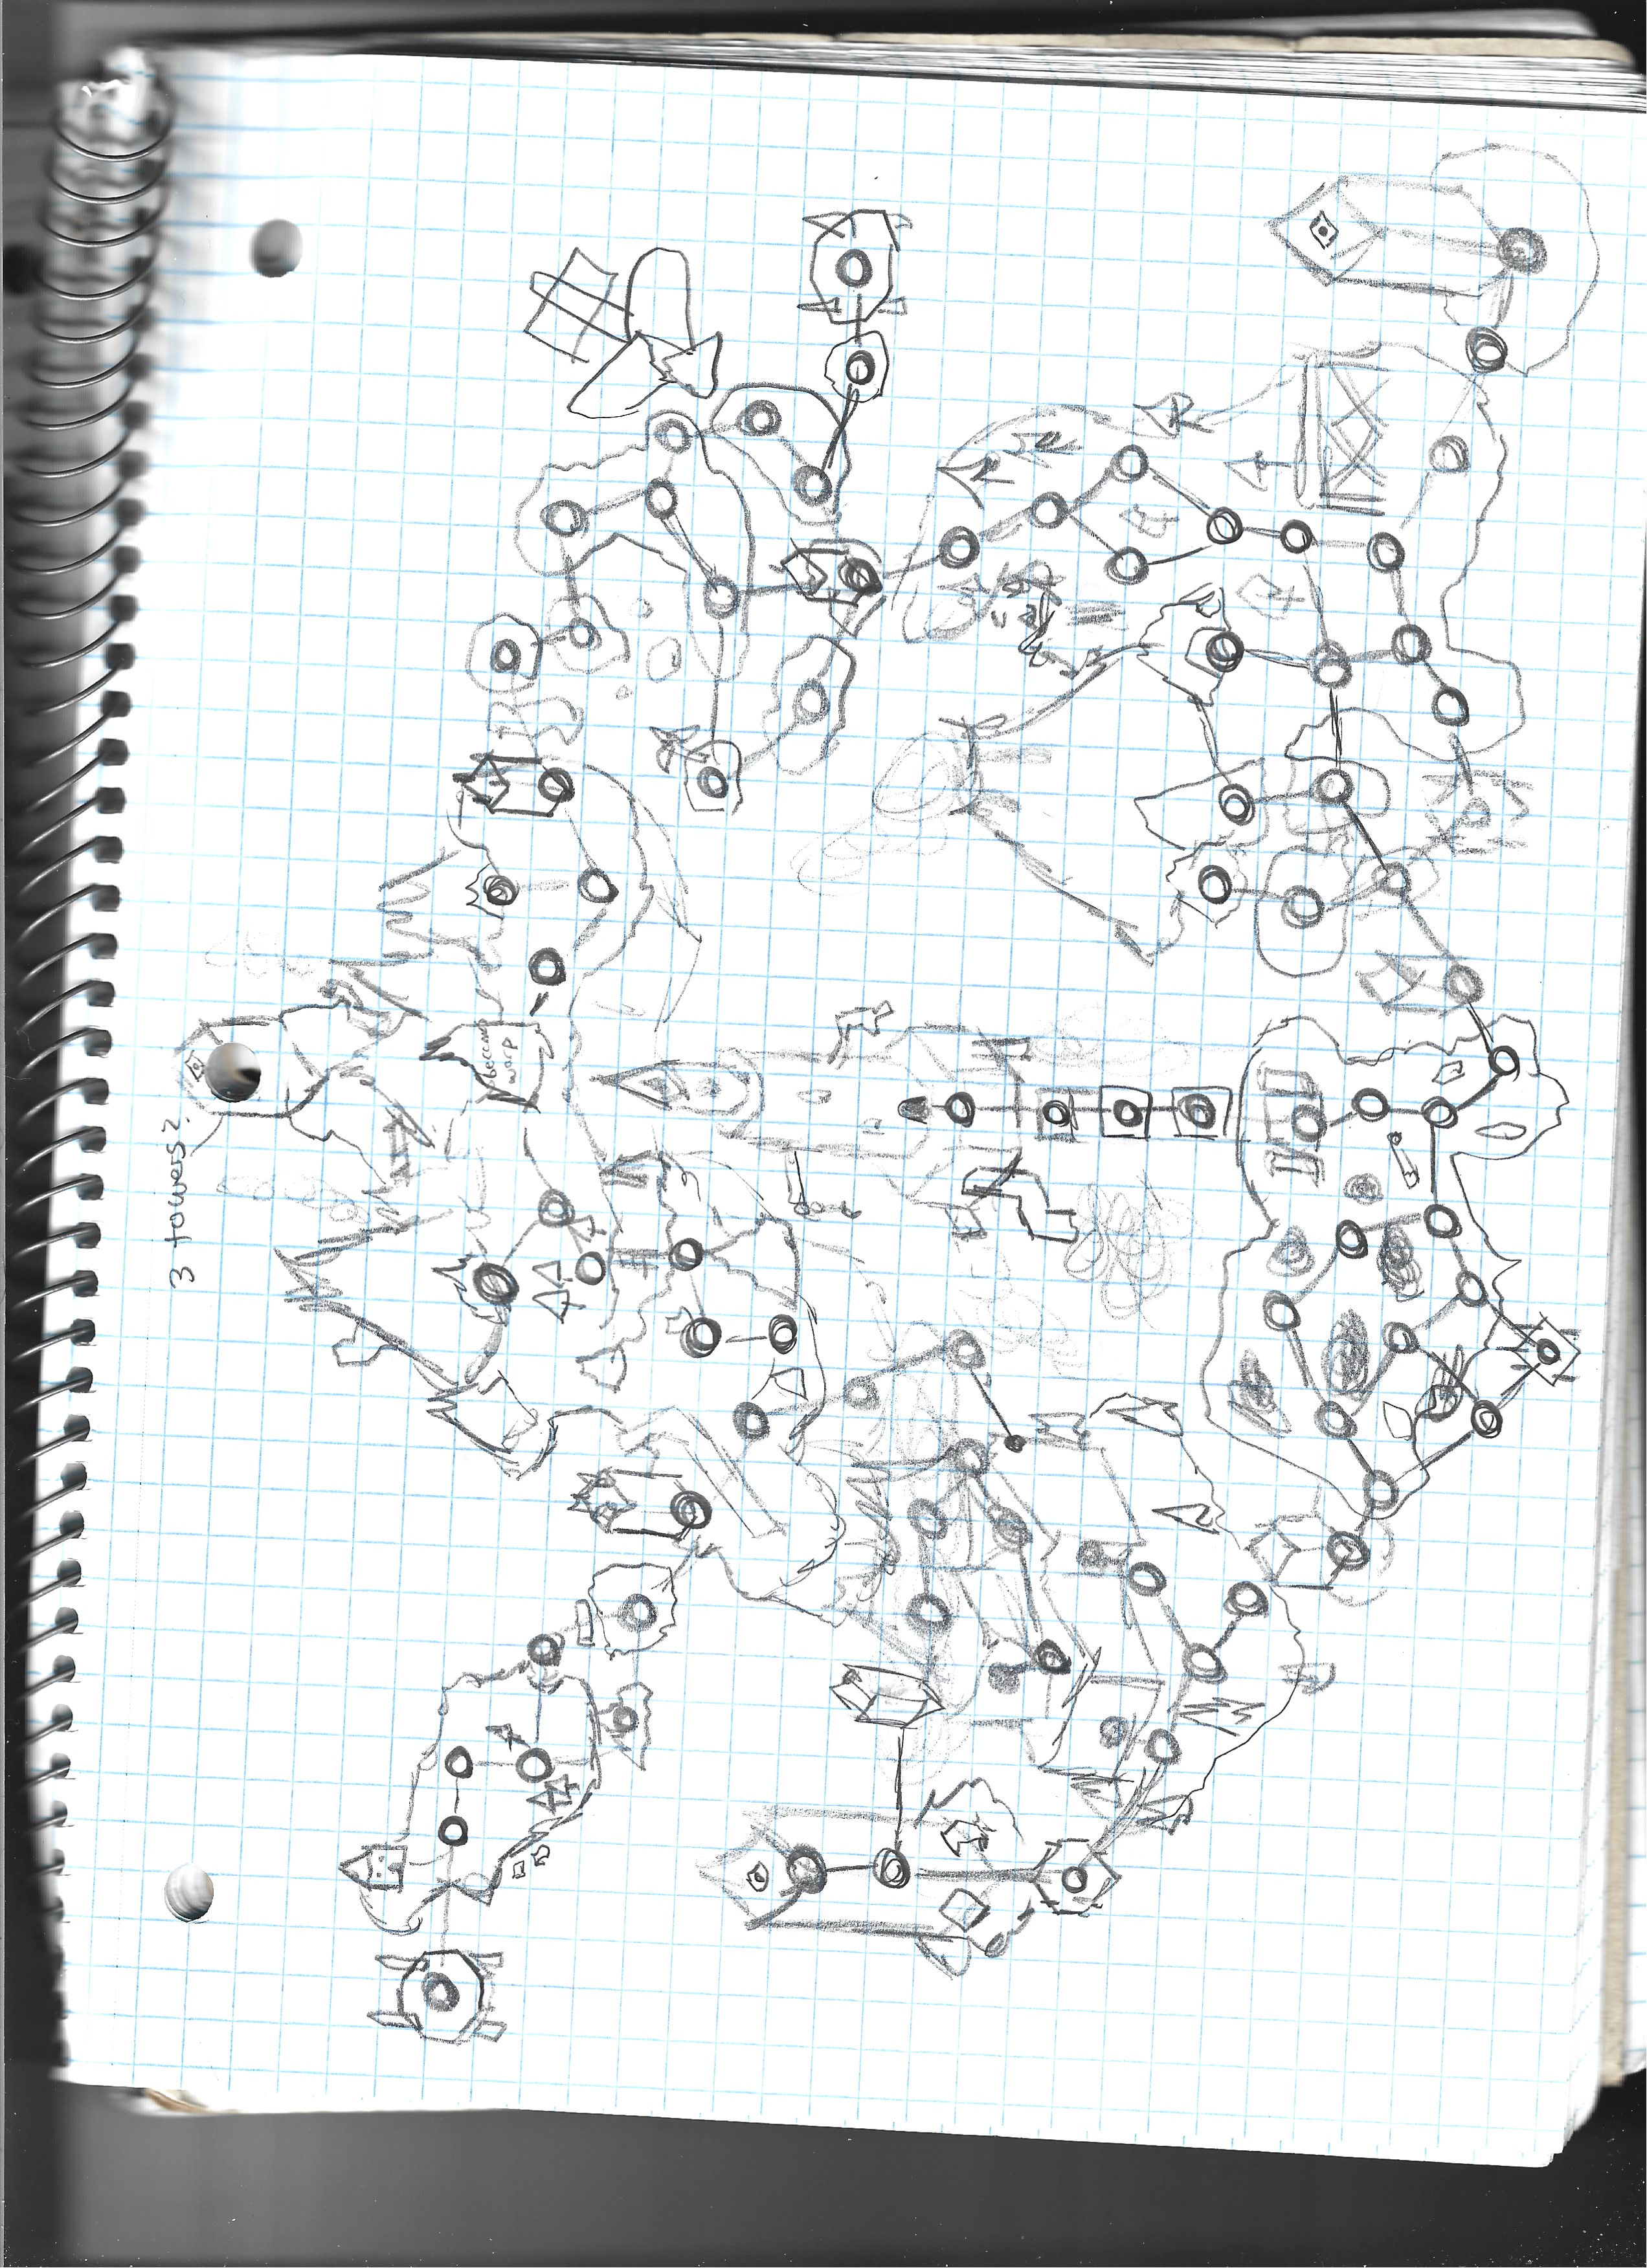 3 towers?
become
warp